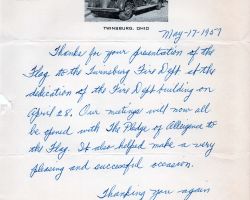 TWINSBURG, OHIO
May-17-1957
Thanks for your presentation of the
Flag to the Twinsburg Fire Dept at the
dedication of the Fire Dept building on
April 28. Our meetings will now all
be opened with The Pledge of Allegience to
the Flag. It also helped make a very
pleasing and successful occasion.
Thanking you again